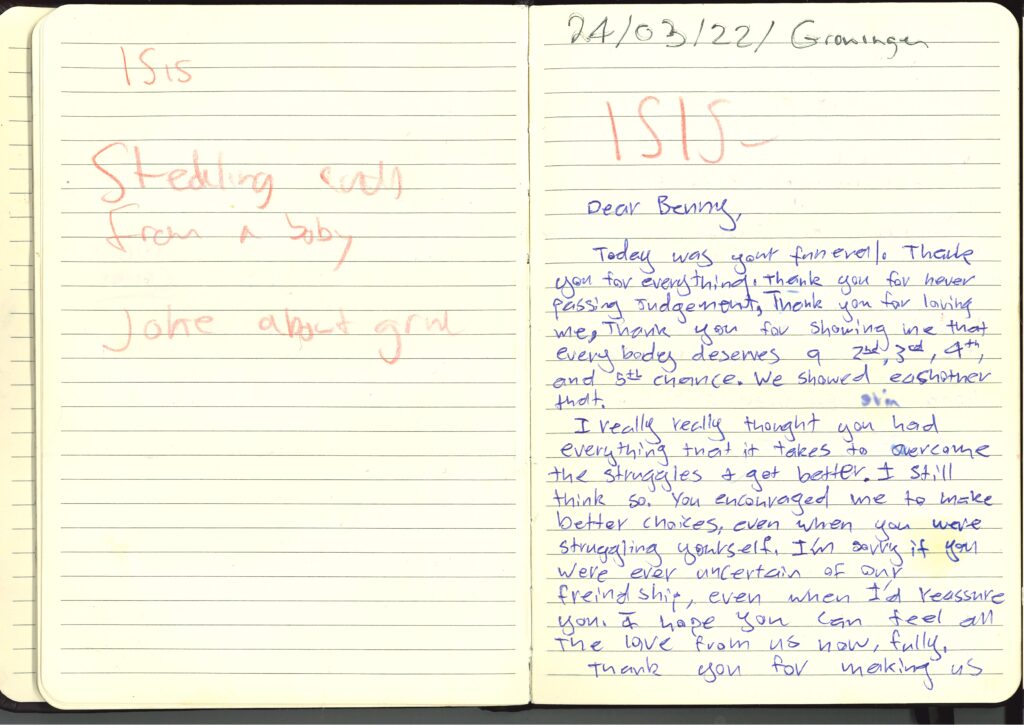 ISis
Stealing
From a baby
Joke about
24/03/22/ Groningen
ISIS
Dear Benny,
Today was yourt funeral. Thank
you for everything. Thank you for never
passing Judgement, Thank you for loving
me, Thank you for showing me that
everybody deserves a 2nd, 3rd, 4th,
and 5th chance. We showed eashother
that.
I really really thought you had
everything that it takes to overcome
the struggles & get better. I still
think so. You encouraged me to make
better choices, even when you were
struggling yourself. I'm sorry if you
were ever uncertain of our
freindship, even when I'd reassure
you. I hope you can feel all
the love from us now, fully.
Thank you for making us